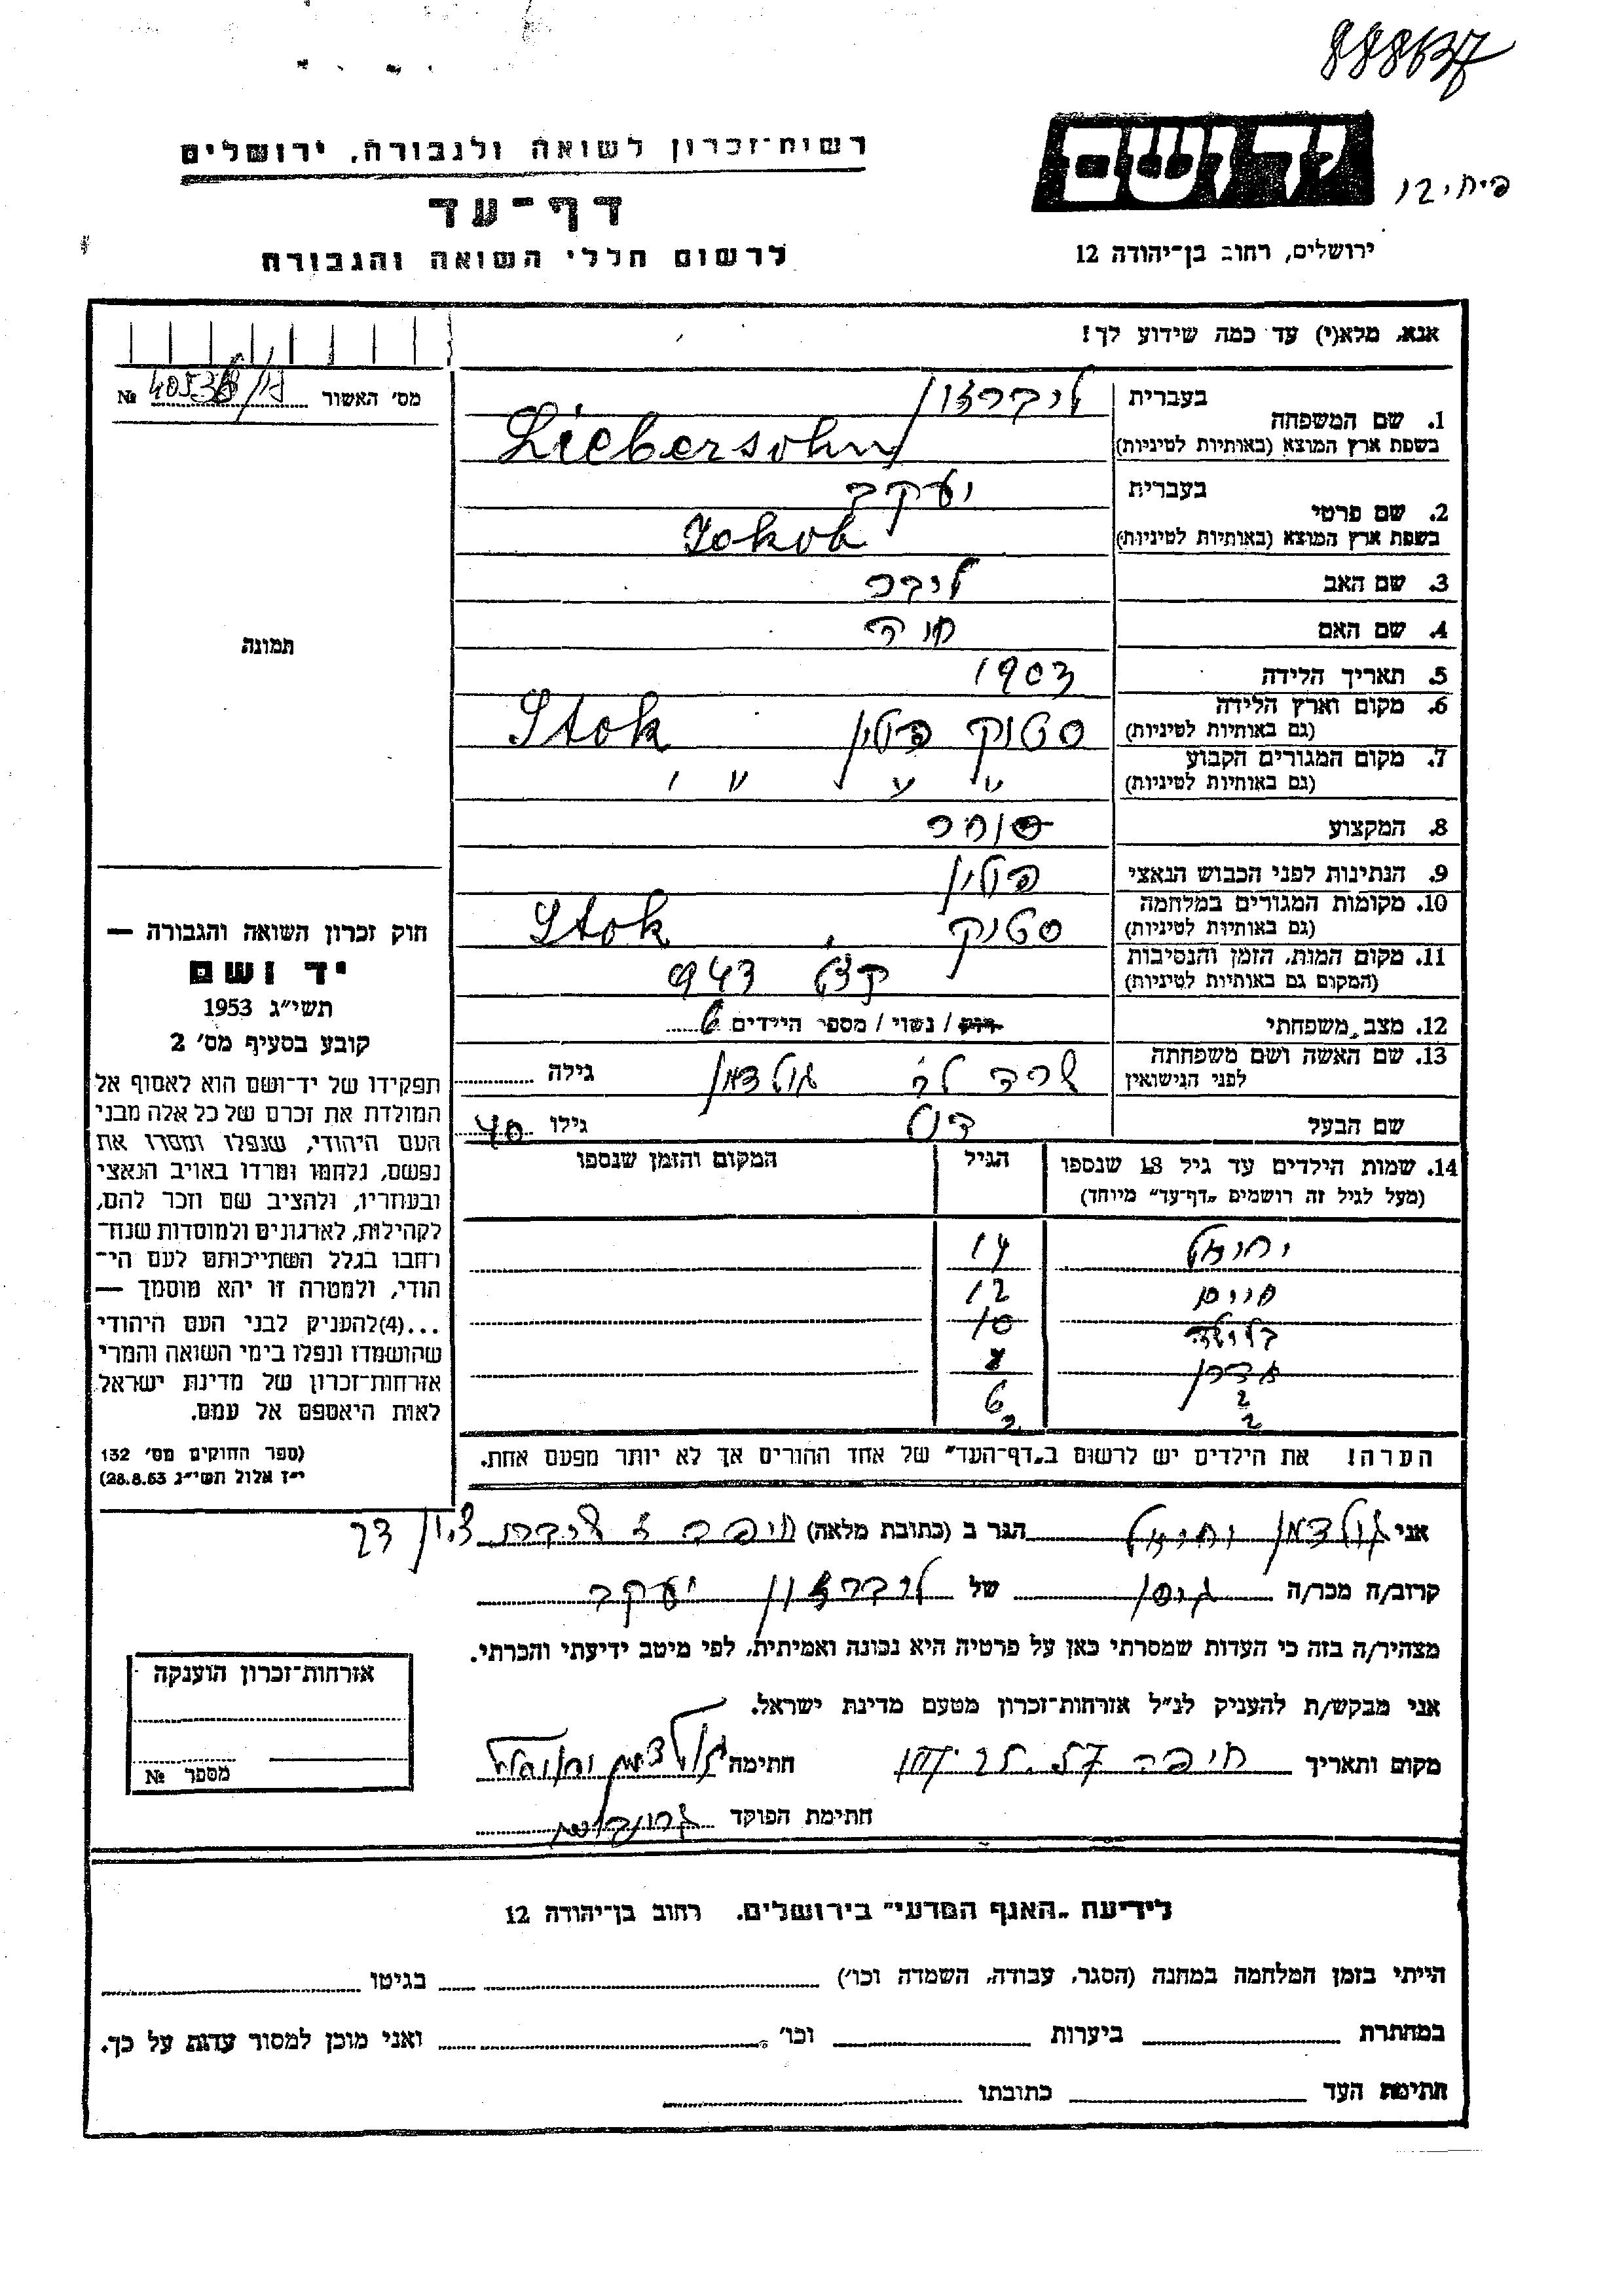 888637
רשות־זכרון לשואה ולגבורה, ירושלים
דף־עד
לרשום חללי השואה והגבורה
יד ושם
ירושלים, רחוב בן־יהודה 12
אנא, מלא(י) עד כמה שידוע לך!
מס׳ האשור № 
1. שם המשפחה בעברית ליברזון
בשפת ארץ המוצא (באותיות לטיניות) Liebersohn
2. שם פרטי בעברית יעקב
בשפת ארץ המוצא (באותיות לטיניות) Jakob
3. שם האב ליבר
4. שם האם חוה
5. תאריך הלידה 1903
6. מקום וארץ הלידה (גם באותיות לטיניות) סטוק פולין Stok
7. מקום המגורים הקבוע (גם באותיות לטיניות) " " " "
8. המקצוע סוחר
9. הנתינות לפני הכבוש הנאצי פולין
10. מקומות המגורים במלחמה (גם באותיות לטיניות) סטוק, Stok
11. מקום המות, הזמן והנסיבות (המקום גם באותיות לטיניות) 943
12. מצב משפחתי רווק / נשוי / מספר הילדים 6
13. שם האשה ושם משפחתה לפני הנישואין שרה לה גולדמן גילה
שם הבעל גילו 40
14. שמות הילדים עד גיל 18 שנספו (מעל לגיל זה רושמים „דף־עד״ מיוחד) הגיל המקום והזמן שנספו
יחיאל 14
חיים 12
10
אהרן 8
? 6
? 2
הערה! את הילדים יש לרשום ב„דף־העד״ של אחד ההורים אך לא יותר מפעם אחת.
תמונה
חוק זכרון השואה והגבורה —
יד ושם
תשי״ג 1953
קובע בסעיף מס׳ 2
תפקידו של יד־ושם הוא לאסוף אל
המולדת את זכרם של כל אלה מבני
העם היהודי, שנפלו ומסרו את
נפשם, נלחמו ומרדו באויב הנאצי
ובעוזריו, ולהציב שם וזכר להם,
לקהילות, לארגונים ולמוסדות שנח־
רחבו בגלל השתייכותם לעם הי־
הודי, ולמטרה זו יהא מוסמך —
...(4)להעניק לבני העם היהודי
שהושמדו ונפלו בימי השואה והמרי
אזרחות־זכרון של מדינת ישראל
לאות היאספם אל עמם.
(ספר החוקים מס׳ 132
י״ז אלול תשי״ג 28.8.53)
אני גולדמן יחיאל הגר ב (כתובת מלאה) חיפה
קרוב/ה מכר/ה גיסו של ליברזון יעקב
מצהיר/ה בזה כי העדות שמסרתי כאן על פרטיה היא נכונה ואמיתית, לפי מיטב ידיעתי והכרתי.
אני מבקש/ת להעניק לנ״ל אזרחות־זכרון מטעם מדינת ישראל.
מקום ותאריך חיפה חתימה גולדמן יחיאל
חתימת הפוקד
אזרחות־זכרון הוענקה
מספר №
לידיעת „האגף המדעי״ בירושלים. רחוב בן־יהודה 12
הייתי בזמן המלחמה במחנה (הסגר, עבודה, השמדה וכו׳) בגיטו
במחתרת ביערות וכו׳ ואני מוכן למסור עדות על כך.
חתימת העד כתובתו